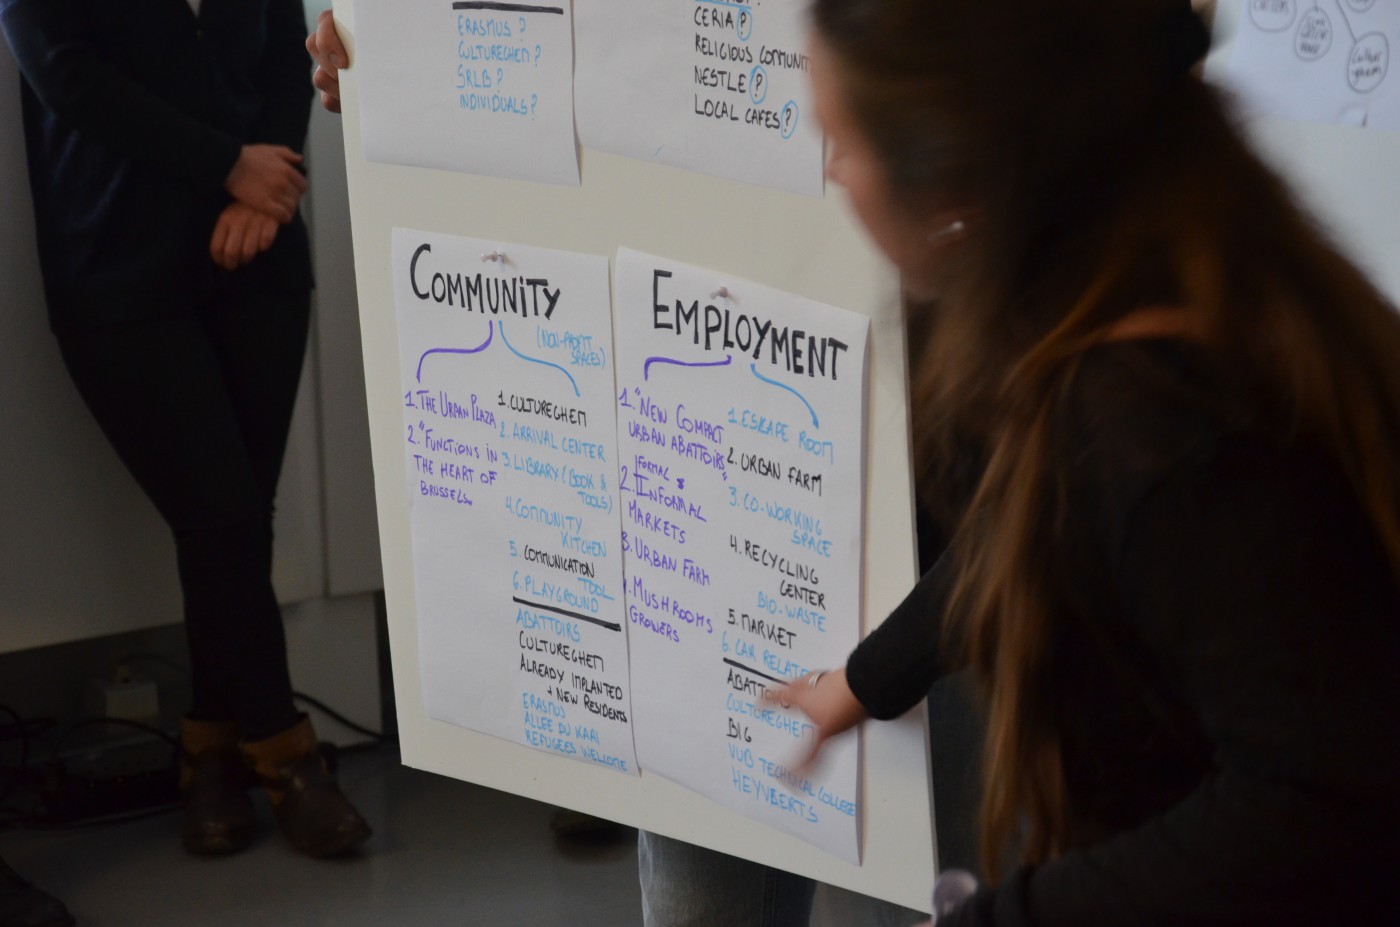 ERASMUS ?
CULTUREGHEM ?
SRLB ?
INDIVIDUALS ?
CERIA ?
RELIGIOUS
NESTLE ?
LOCAL CAFES ?
COMMUNITY
(NON-PROFIT
SPACES)
1. THE URBAN PLAZA
2. "FUNCTIONS IN
THE HEART OF
BRUSSELS
1. CULTUREGHEM
2. ARRIVAL CENTER
3. LIBRARY (BOOK &
TOOLS)
4. COMMUNITY
KITCHEN
5. COMMUNICATION
TOOL
6. PLAYGROUND
ABATTOIRS
CULTUREGHEM
ALREADY IMPLANTED
+ NEW RESIDENTS
ERASMUS
ALLEE DU KAAI
REFUGEES WELCOME
EMPLOYMENT
1. "NEW COMPACT
URBAN ABATTOIRS"
FORMAL &
2. INFORMAL
MARKETS
3. URBAN FARM
MUSHROOMS
GROWERS
1. ESCAPE ROOM
2. URBAN FARM
3. CO-WORKING
SPACE
4. RECYCLING
CENTER
BIO-WASTE
5. MARKET
6. CAR
CULTUREGHEM
BIG
VUB TECHNICAL COLLEGE
HEYVBERTS